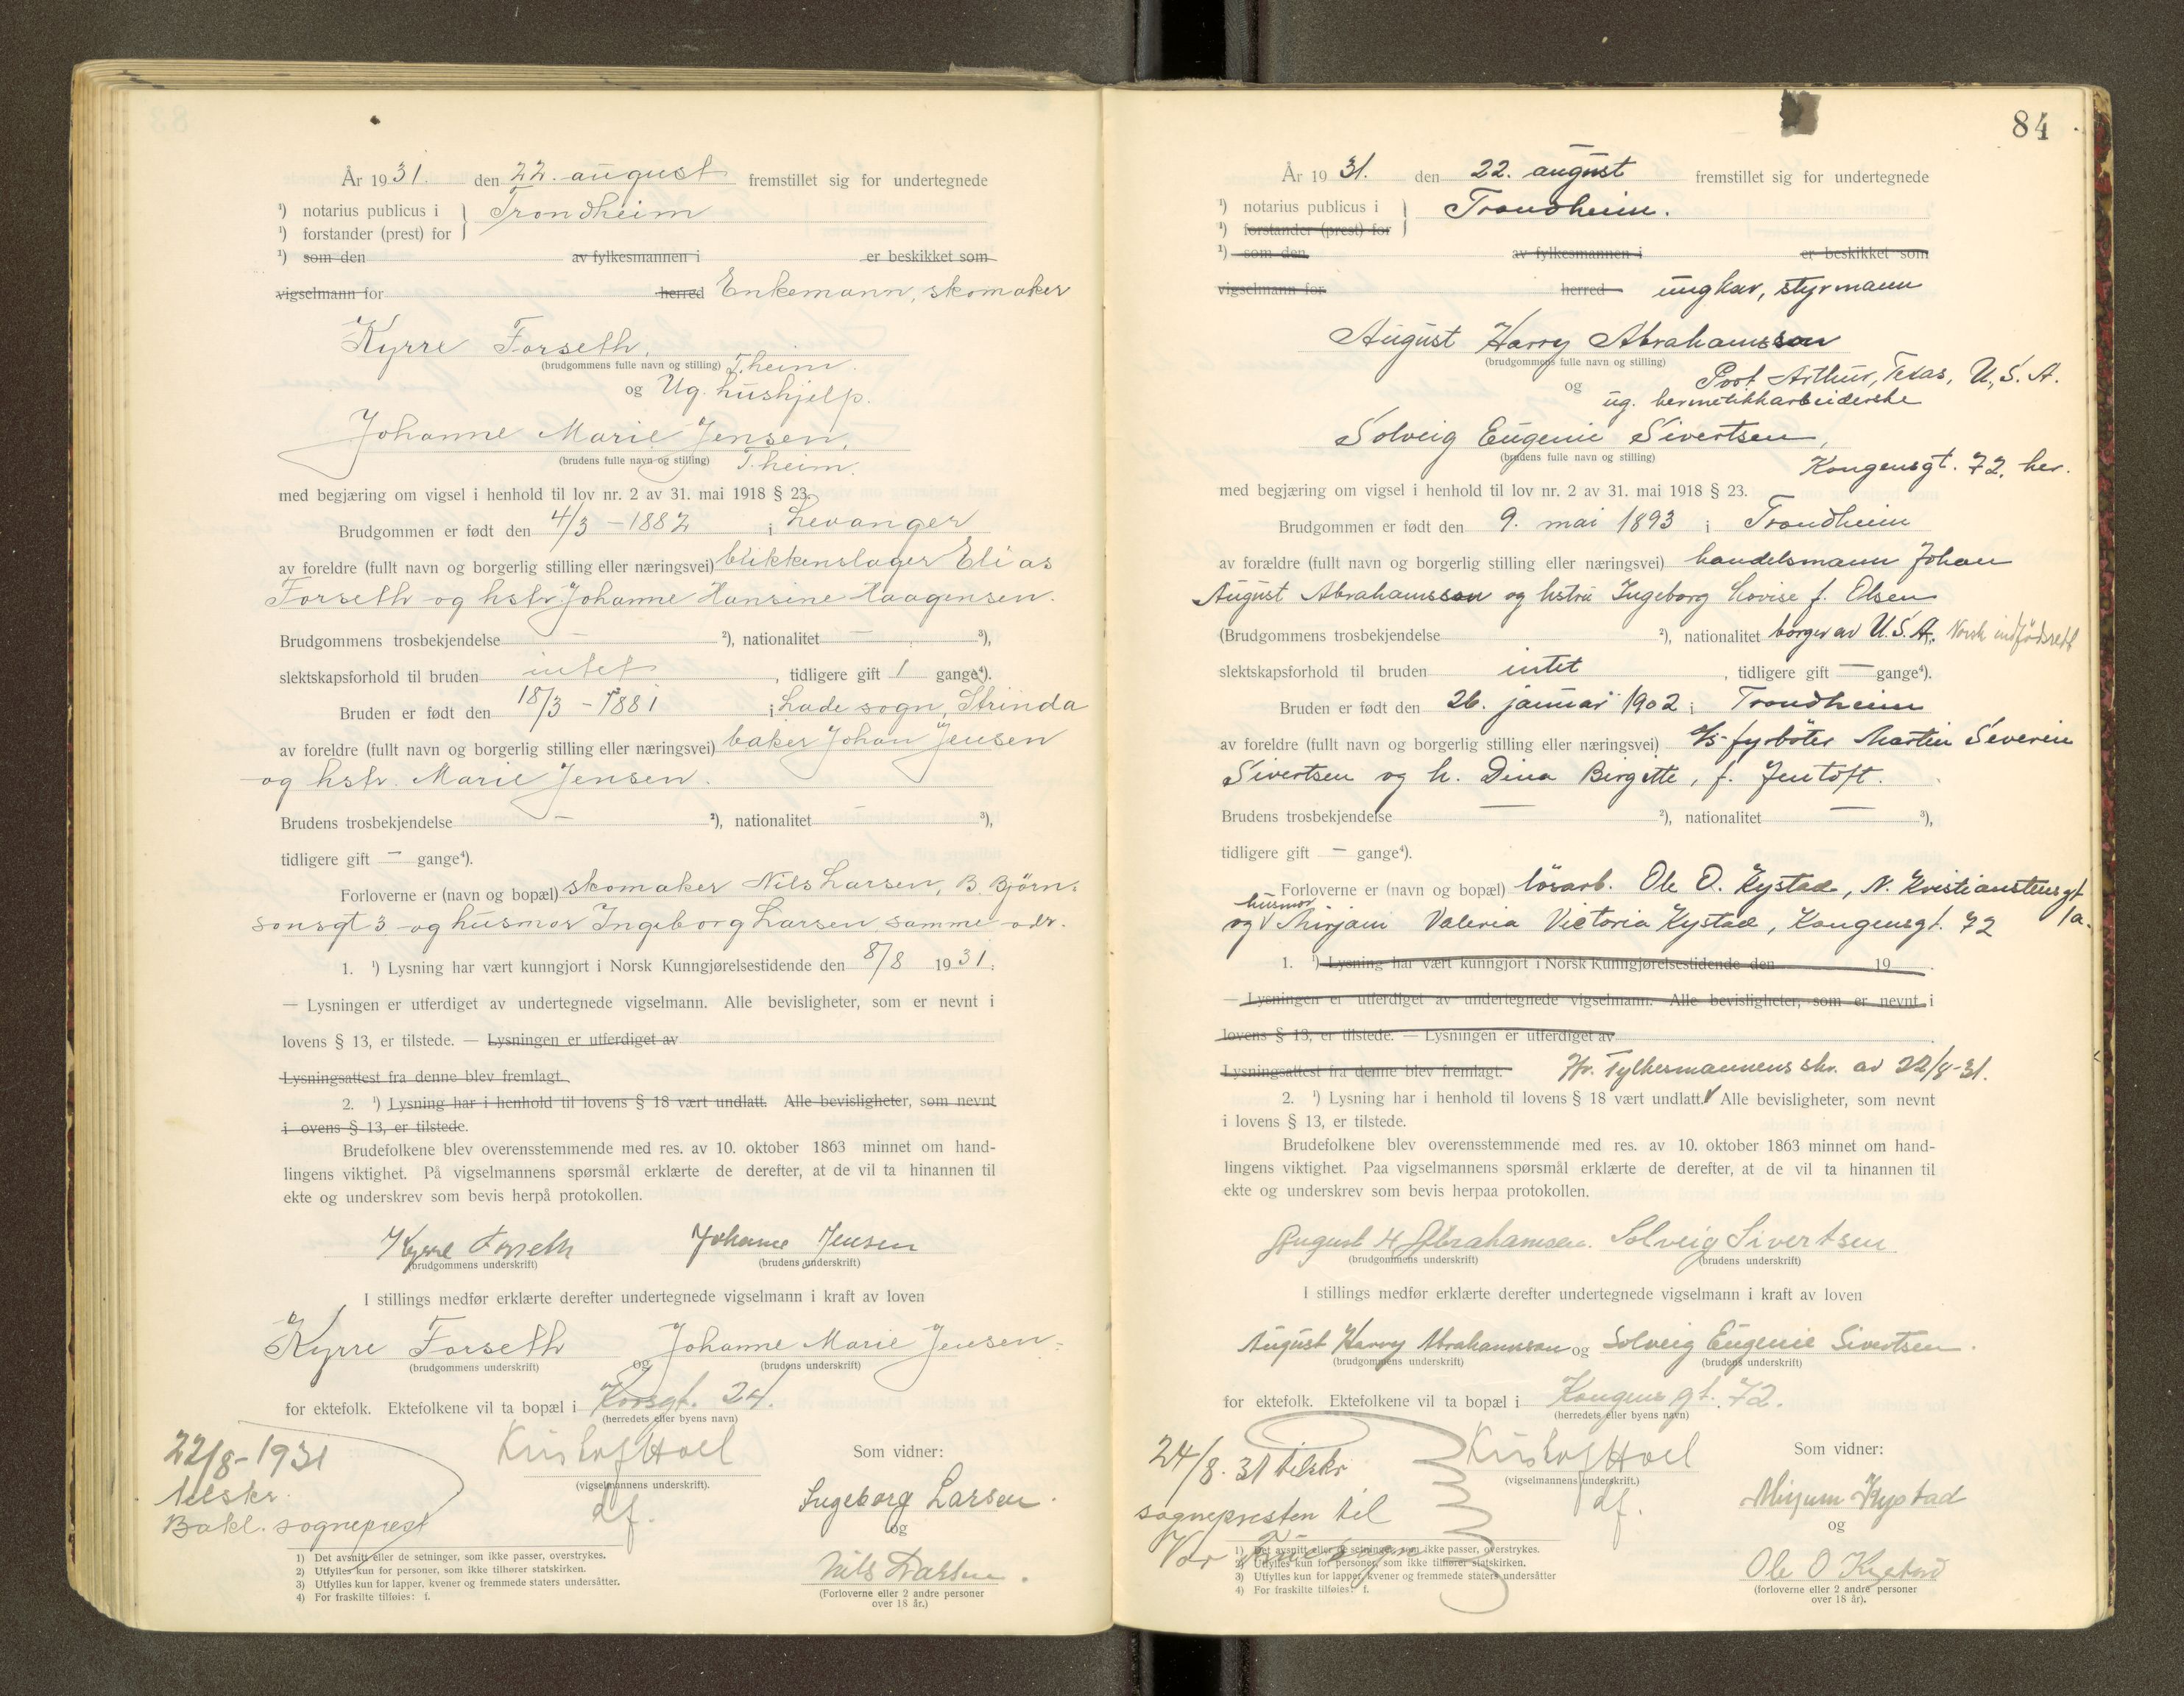 År 1931. den 22. august fremstillet sig for undertegnede
¹) notarius publicus i } Trondheim
¹) forstander (prest) for
¹) som den av fylkesmannen i er beskikket som
vigselmann for herred Enkemann, skomaker
Kyrre Forseth,
(brudgommens fulle navn og stilling) T.heim.
og Ug. hushjelp.
Johanne Marie Jensen,
(brudens fulle navn og stilling) T.heim.
med begjæring om vigsel i henhold til lov nr. 2 av 31. mai 1918 § 23.
Brudgommen er født den 4/3 - 1882 i Levanger
av foreldre (fullt navn og borgerlig stilling eller næringsvei) blikkenslager Elias
Forseth og hstr. Johanne Hansine Haagensen.
Brudgommens trosbekjendelse — ²), nationalitet — ³),
slektskapsforhold til bruden intet, tidligere gift 1 gange⁴).
Bruden er født den 18/3 - 1881 i Lade sogn, Strinda
av foreldre (fullt navn og borgerlig stilling eller næringsvei) baker Johan Jensen
og hstr. Marie Jensen.
Brudens trosbekjendelse — ²), nationalitet ³),
tidligere gift — gange⁴).
Forloverne er (navn og bopæl) skomaker Nils Larsen, B. Björn-
sonsgt 3 og husmor Ingeborg Larsen samme adr.
1. ¹) Lysning har vært kunngjort i Norsk Kunngjørelsestidende den 8/8 1931.
— Lysningen er utferdiget av undertegnede vigselmann. Alle bevisligheter, som er nevnt i
lovens § 13, er tilstede. — Lysningen er utferdiget av
Lysningsattest fra denne blev fremlagt.
2. ¹) Lysning har i henhold til lovens § 18 vært undlatt. Alle bevisligheter, som nevnt
i ovens § 13, er tilstede.
Brudefolkene blev overensstemmende med res. av 10. oktober 1863 minnet om hand-
lingens viktighet. På vigselmannens spørsmål erklærte de derefter, at de vil ta hinannen til
ekte og underskrev som bevis herpå protokollen.
Kyrre Forseth Johanne Jensen
(brudgommens underskrift) (brudens underskrift)
I stillings medfør erklærte derefter undertegnede vigselmann i kraft av loven
Kyrre Forseth og Johanne Marie Jensen
(brudgommens underskrift) (brudens underskrift)
for ektefolk. Ektefolkene vil ta bopæl i Korsgt. 24.
(herredets eller byens navn)
22/8-1931
tilskr.
Bakl. sogneprest
Kristof Hoel
(vigselmannens underskrift).
df.
Som vidner:
Ingeborg Larsen.
og
Nils Larsen.
(Forloverne eller 2 andre personer
over 18 år.)
1) Det avsnitt eller de setninger, som ikke passer, overstrykes.
2) Utfylles kun for personer, som ikke tilhører statskirken.
3) Utfylles kun for lapper, kvener og fremmede staters undersåtter.
4) For fraskilte tilføies: f.
84
År 1931. den 22. august fremstillet sig for undertegnede
¹) notarius publicus i } Trondheim.
¹) forstander (prest) for
¹) som den av fylkesmannen i er beskikket som
vigselmann for herred ungkar, styrmann
August Harry Abrahamsson
(brudgommens fulle navn og stilling)
Port Arthur, Texas, U.S.A.
og ug. hermetikkarbeiderske
Solveig Eugenie Sivertsen,
(brudens fulle navn og stilling)
Kongensgt. 72, her.
med begjæring om vigsel i henhold til lov nr. 2 av 31. mai 1918 § 23.
Brudgommen er født den 9. mai 1893 i Trondheim
av forældre (fullt navn og borgerlig stilling eller næringsvei) handelsmann Johan
August Abrahamsson og hstru Ingeborg Lovise f. Olsen
(Brudgommens trosbekjendelse ²), nationalitet borger av U.S.A. Norsk indfödsrett
slektskapsforhold til bruden intet, tidligere gift — gange⁴).
Bruden er født den 26. januar 1902 i Trondheim
av foreldre (fullt navn og borgerlig stilling eller næringsvei) fyrböter Martin Severin
Sivertsen og h. Dina Birgitte, f. Jentoft.
Brudens trosbekjendelse — ²), nationalitet — ³),
tidligere gift — gange⁴).
Forloverne er (navn og bopæl) lösarb. Ole O. Kystad, N. Kristianstensgt 1a.
og husmor Mirjam Valeria Victoria Kystad, Kongensgt. 72
1. ¹) Lysning har vært kunngjort i Norsk Kunngjørelsestidende den 19
— Lysningen er utferdiget av undertegnede vigselmann. Alle bevisligheter, som er nevnt i
lovens § 13, er tilstede. — Lysningen er utferdiget av
Lysningsattest fra denne blev fremlagt. Jfr. Fylkesmannens skr. av 22/8-31.
2. ¹) Lysning har i henhold til lovens § 18 vært undlatt. Alle bevisligheter, som nevnt
i lovens § 13, er tilstede.
Brudefolkene blev overensstemmende med res. av 10. oktober 1863 minnet om hand-
lingens viktighet. Paa vigselmannens spørsmål erklærte de derefter, at de vil ta hinannen til
ekte og underskrev som bevis herpaa protokollen.
August H. Abrahamsen. Solveig Sivertsen
(brudgommens underskrift) (brudens underskrift)
I stillings medfør erklærte derefter undertegnede vigselmann i kraft av loven
August Harry Abrahamsson og Solveig Eugenie Sivertsen.
(brudgommens underskrift) (brudens underskrift)
for ektefolk. Ektefolkene vil ta bopæl i Kongensgt. 72.
(herredets eller byens navn)
24/8.31 tilskr
sognepresten til
Vor Frue sogn
Kristof Hoel
(vigselmannens underskrift.)
df.
Som vidner:
Mirjam Kystad
og
Ole O Kystad
(forloverne eller 2 andre personer
over 18 år).
1) Det avsnitt eller de setninger, som ikke passer, overstrykes.
2) Utfylles kun for personer, som ikke tilhører statskirken.
3) Utfylles kun for lapper, kvener og fremmede staters undersåtter
4) For fraskilte tilføies: f.